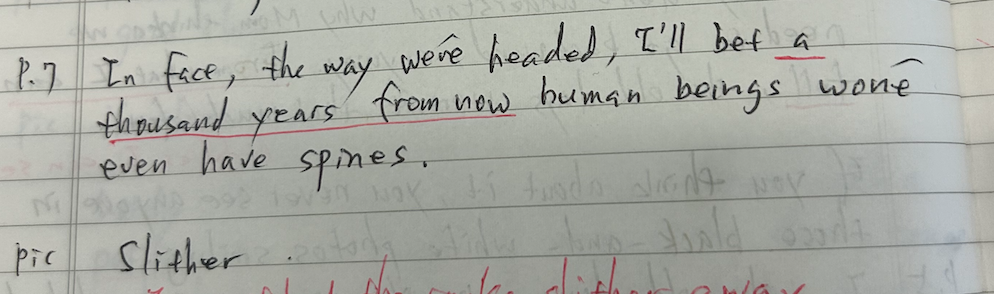 P.7 In fact, the way we're headed, I'll bet a
thousand years from now human beings won't
even have spines.
pic Slither.
the slither away